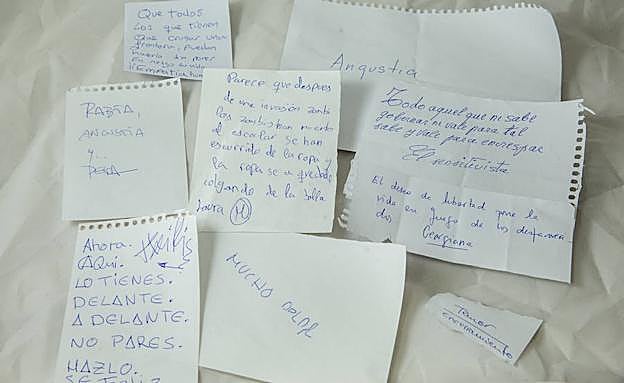 Que todos
los que tienen
que cruzar una
frontera, puedan
hacerlo sin poner
en riesgo su vida
Angustia
RABIA,
ANGUSTIA
y...
PENA
Parece que después
de una invasión zombi
los zombis han muerto
al escalar se han
escurrido de la ropa y
la ropa se a quedado
colgando de la valla
Laura
Todo aquel que ni sabe
gobernar ni vale para tal
sabe y vale para
El positivista
El deseo de libertad pone la
vida en juego de los
dos
Georgiana
Ahora.
AQUÍ.
LO TIENES.
DELANTE.
ADELANTE.
NO PARES.
HAZLO.
SÉ FELIZ
MUCHO DOLOR
Temor